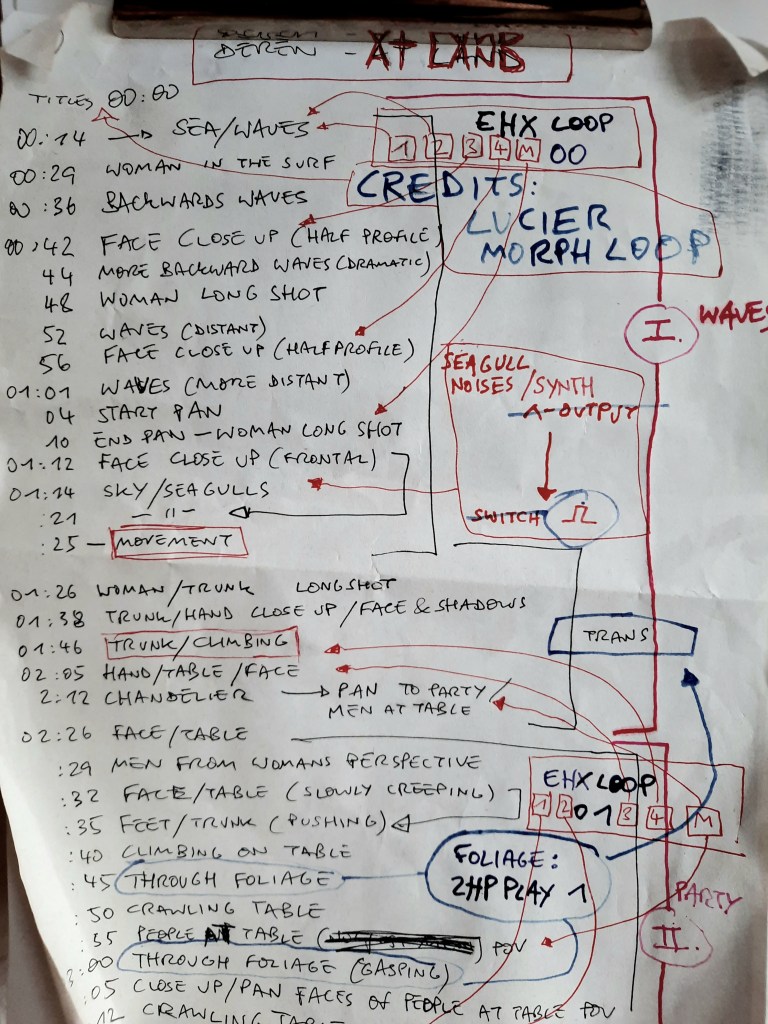 DEREN - AT LAND
TITLES 00:00
00:14 → SEA/WAVES
00:29 WOMAN IN THE SURF
00:36 BACKWARDS WAVES
00:42 FACE CLOSE UP (HALF PROFILE)
44 MORE BACKWARD WAVES (DRAMATIC)
48 WOMAN LONG SHOT
52 WAVES (DISTANT)
56 FACE CLOSE UP (HALFPROFILE)
01:01 WAVES (MORE DISTANT)
04 START PAN
10 END PAN - WOMAN LONG SHOT
01:12 FACE CLOSE UP (FRONTAL)
01:14 SKY/SEAGULLS
:21 — " —
:25 — MOVEMENT
EHX LOOP
1 2 3 4 M 00
CREDITS:
LUCIER
MORPH LOOP
I. WAVES
SEAGULL
NOISES/SYNTH
A-OUTPUT
SWITCH
01:26 WOMAN/TRUNK LONGSHOT
01:38 TRUNK/HAND CLOSE UP/FACE & SHADOWS
01:46 TRUNK/CLIMBING
02:05 HAND/TABLE/FACE
2:12 CHANDELIER → PAN TO PARTY/
MEN AT TABLE
TRANS
02:26 FACE/TABLE
:29 MEN FROM WOMANS PERSPECTIVE
:32 FACE/TABLE (SLOWLY CREEPING)
:35 FEET/TRUNK (PUSHING)
:40 CLIMBING ON TABLE
:45 THROUGH FOLIAGE
:50 CRAWLING TABLE
:55 PEOPLE AT TABLE () POV
3:00 THROUGH FOLIAGE (GASPING)
:05 CLOSE UP/PAN FACES OF PEOPLE AT TABLE POV
12 CRAWLING TABLE
EHX LOOP
1 2 01 3 4 M
FOLIAGE:
2HP PLAY 1
PARTY
II.